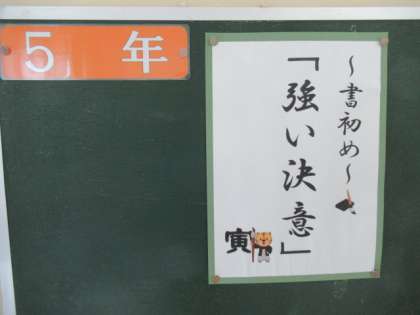 5 年
～書初め～
「強い決意」
寅